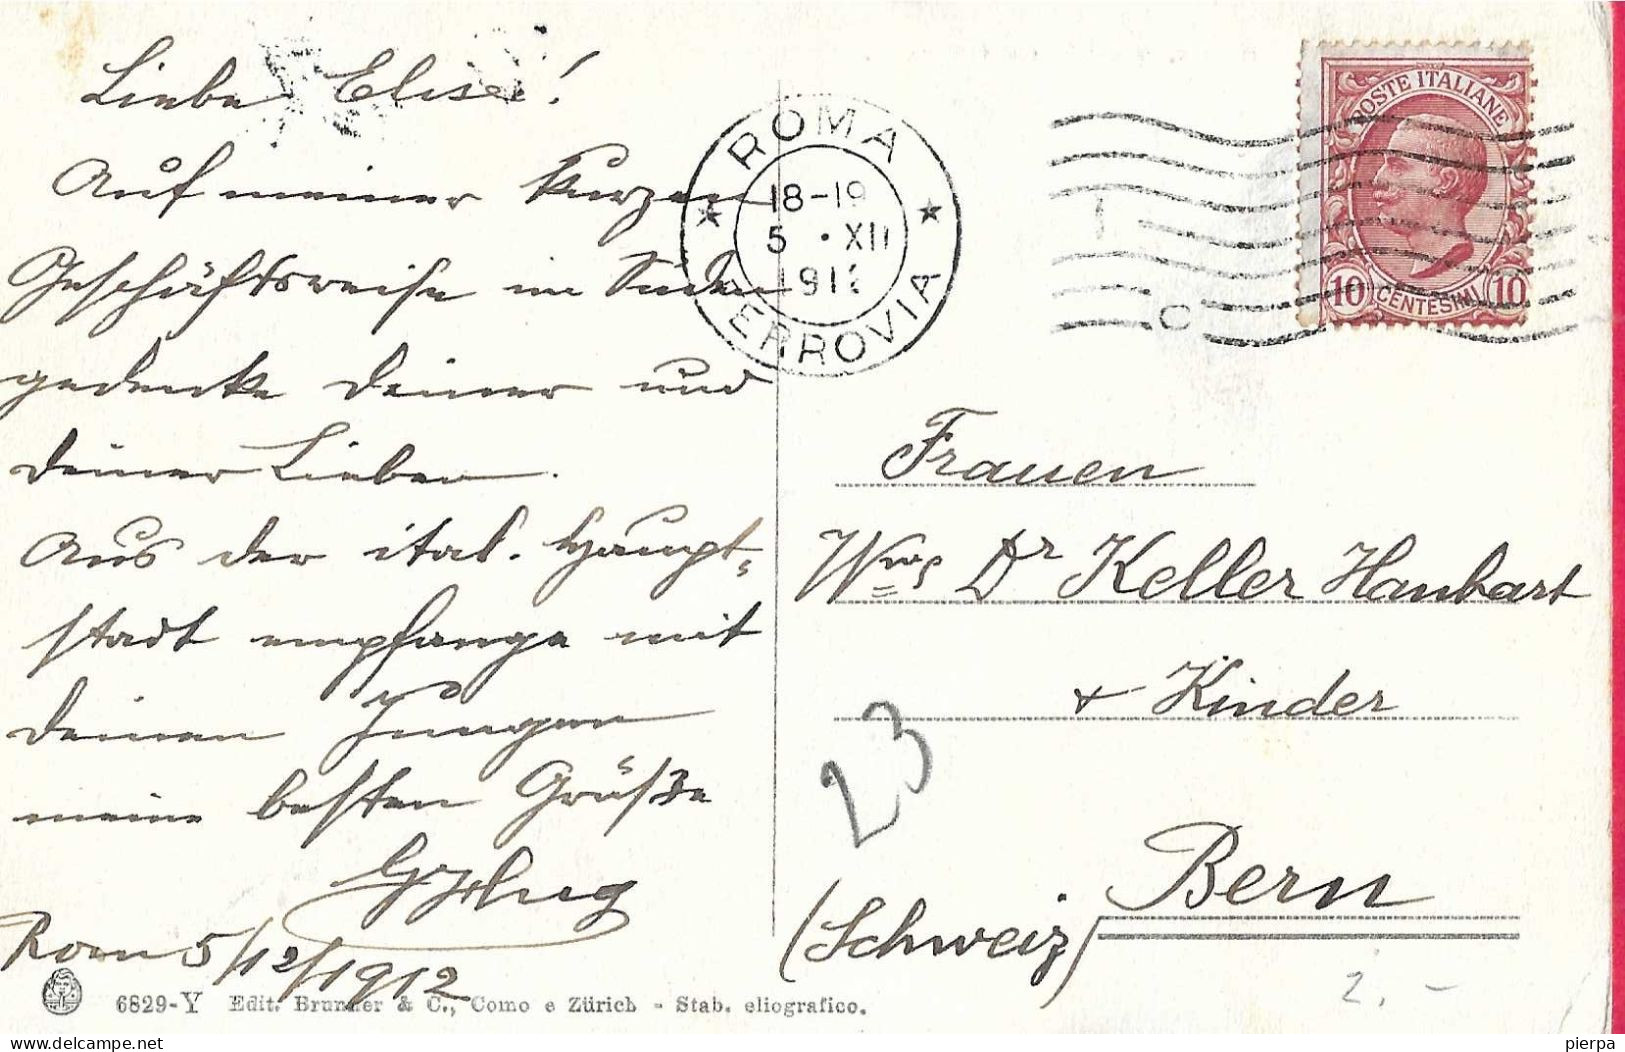 Liebe Elise!
Auf meiner kurzen
Geschäftsreise im Süden
gedenke deiner und
deiner Lieben.
Aus der ital. Haupt-
stadt empfange mit
deinen Jungen
meine besten Grüße
Rom 5/12/1912
6829-Y Edit. Brunner & C., Como e Zürich - Stab. eliografico.
ROMA
18-19
5 • XII
191
FERROVIA
POSTE ITALIANE
10 CENTESIMI 10
Frauen
Dr Keller Hanhart
+ Kinder
23
Bern
(Schweiz)
2.-
pierpa